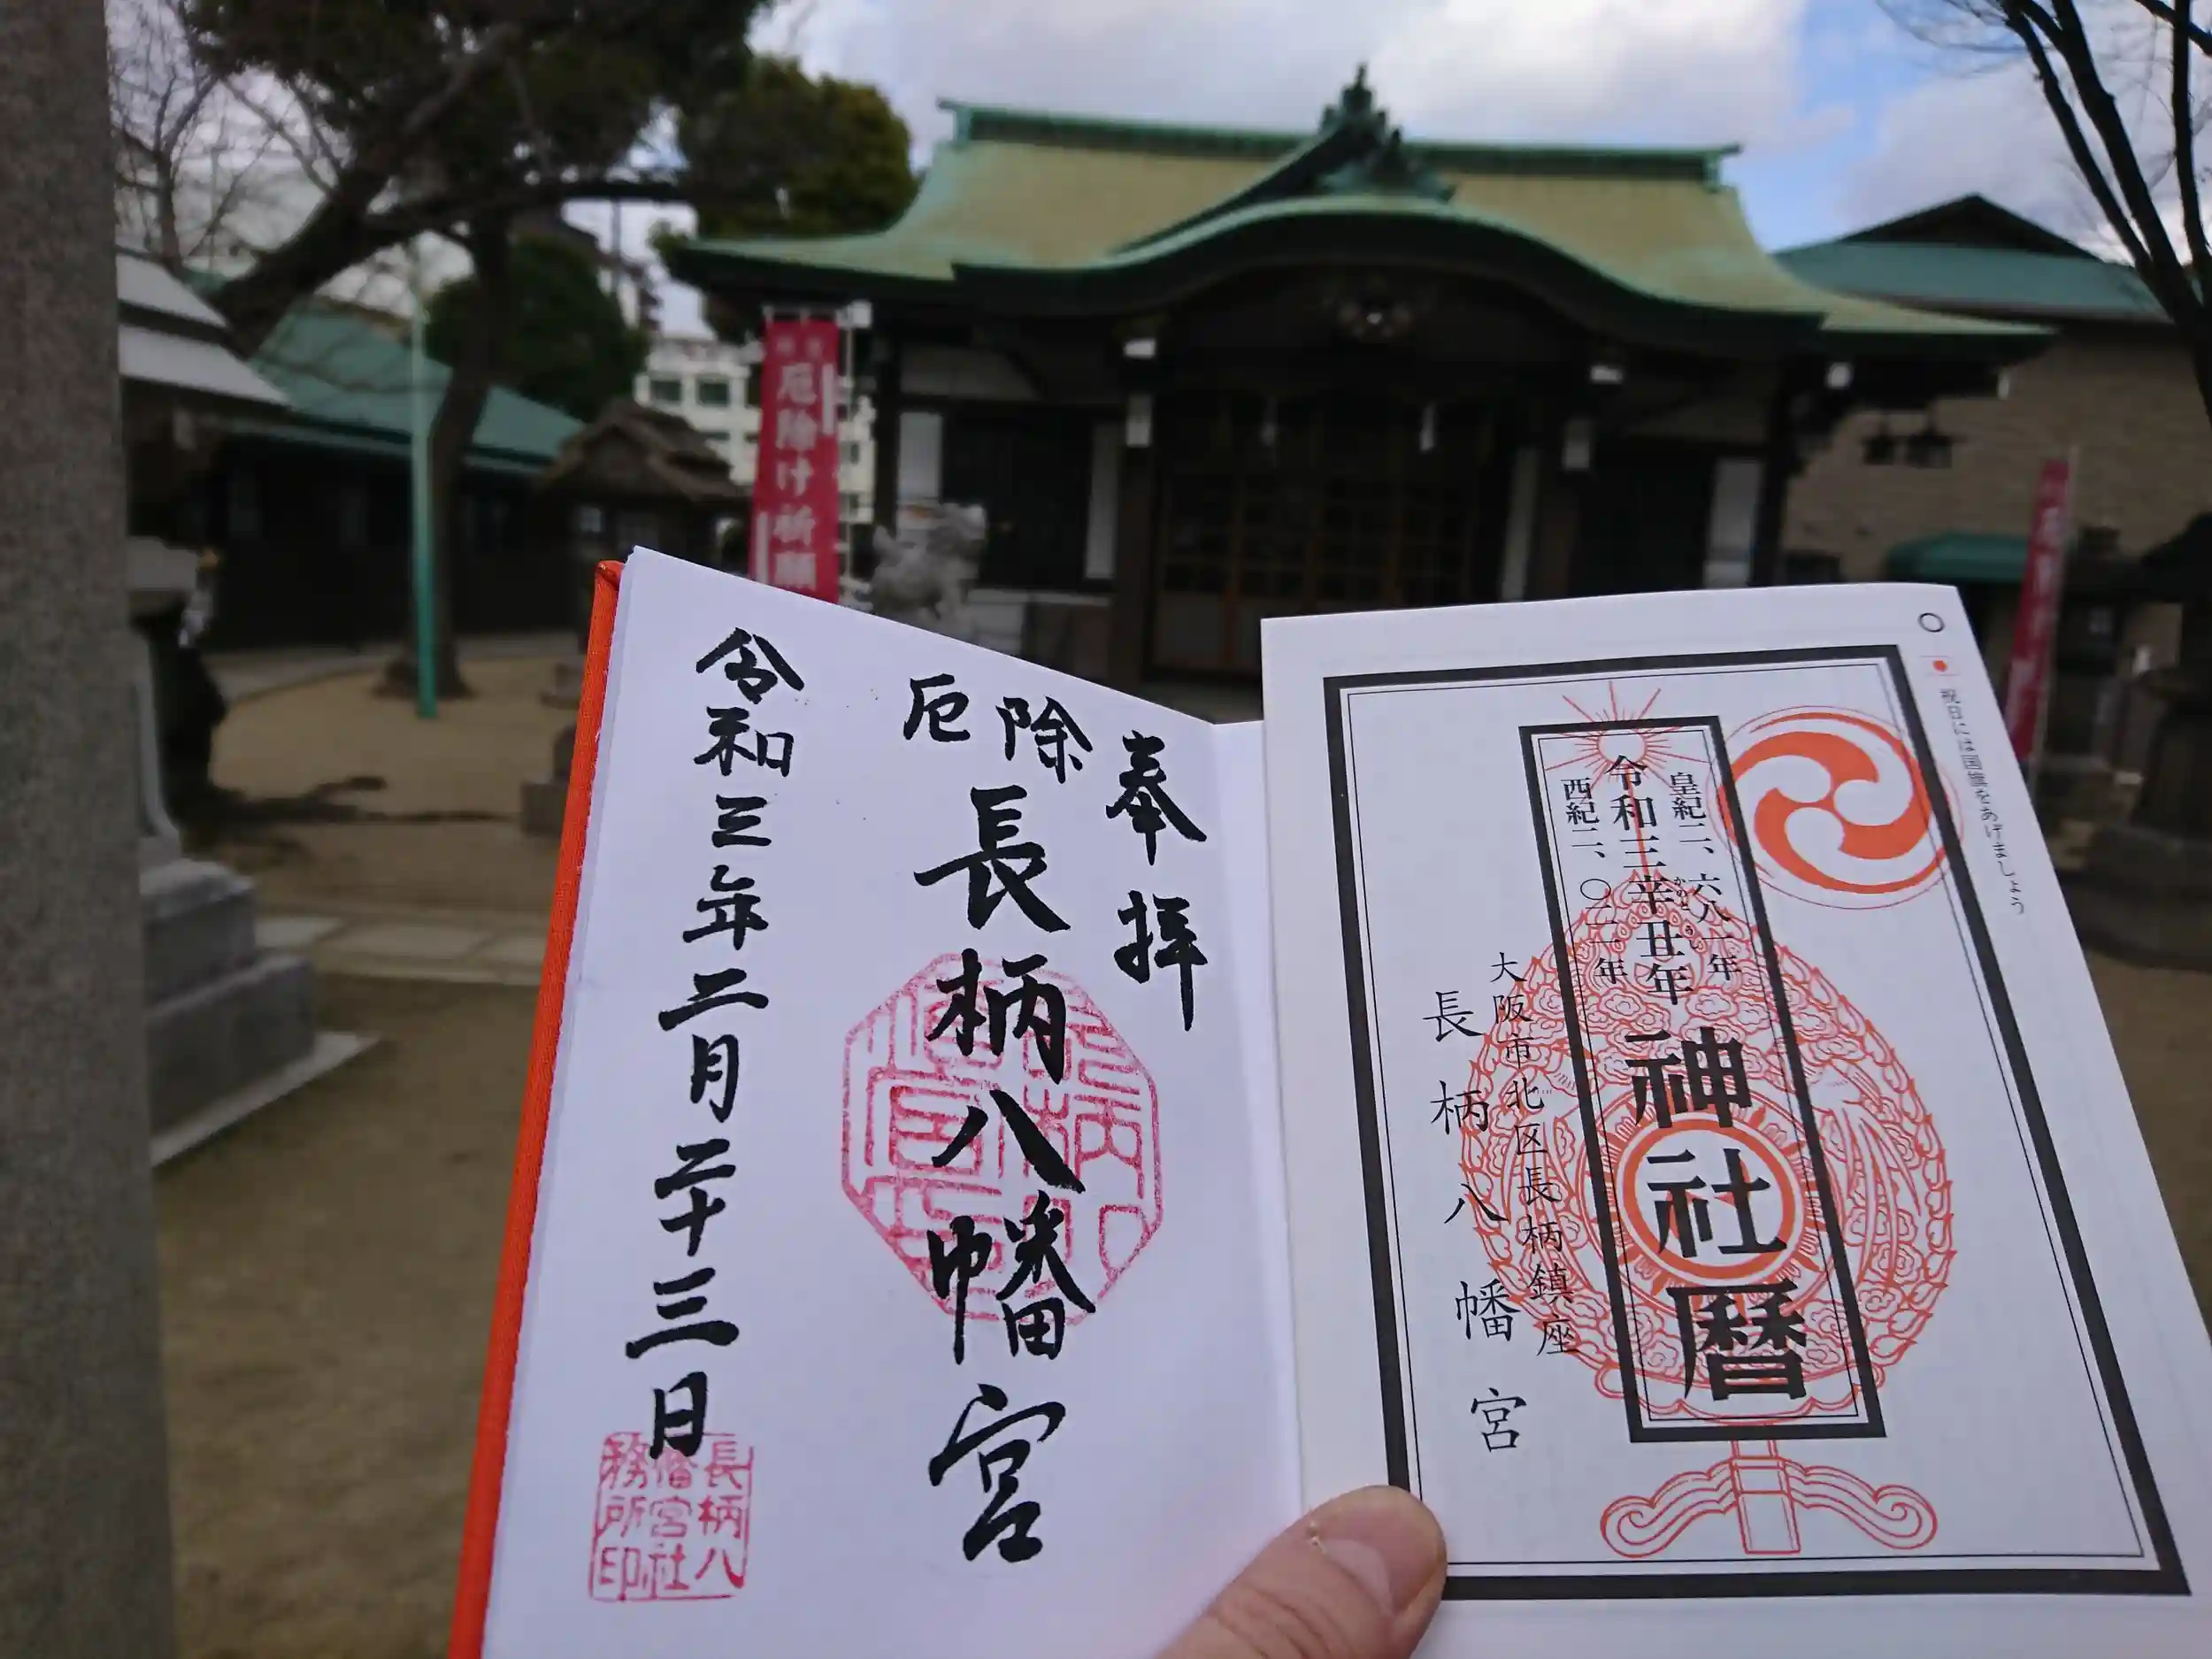 厄除け祈願
奉拝
厄除
長柄八幡宮
令和三年二月二十三日
長柄八
幡宮社
務所印
祝日には国旗をあげましょう
皇紀二、六八一年
令和三辛丑年
西紀二、〇二一年
神社暦
大阪市北区長柄鎮座
長柄八幡宮